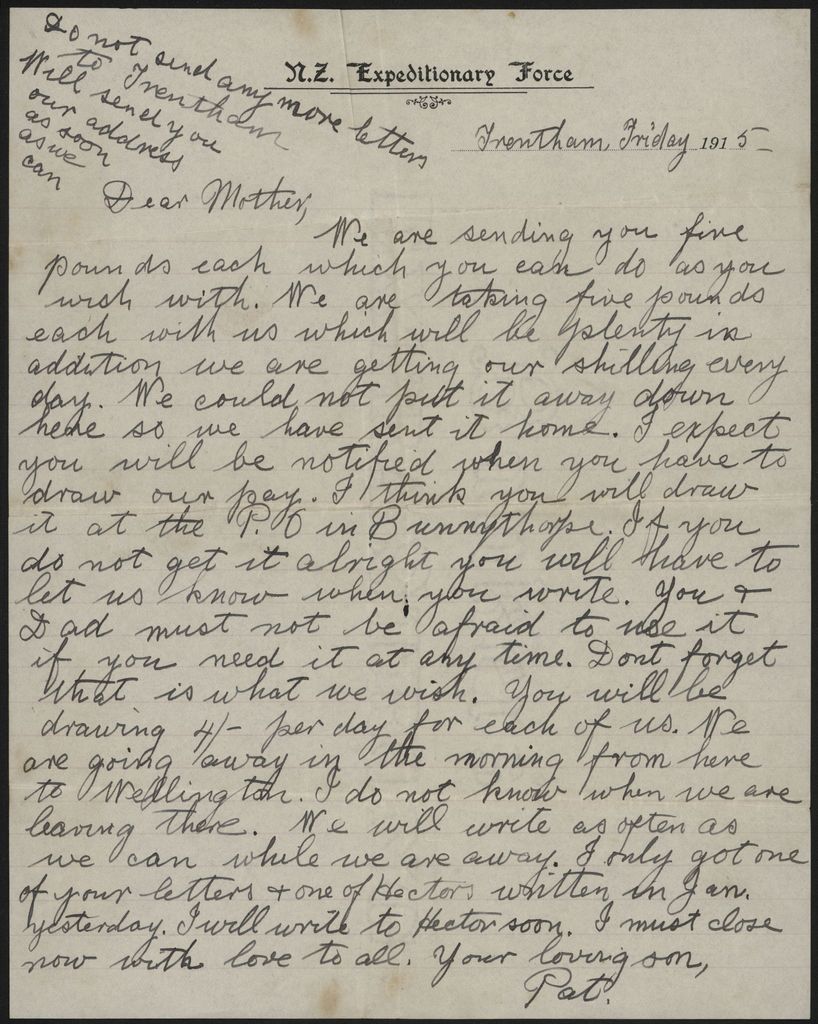 Do not send any more letters
to Trentham
Will send you
our address
as soon
as we
can
N.Z. Expeditionary Force
Trentham, Friday 1915
Dear Mother,
We are sending you five
pounds each which you can do as you
wish with. We are taking five pounds
each with us which will be plenty in
addition we are getting our shilling every
day. We could not put it away down
here so we have sent it home. I expect
you will be notified when you have to
draw our pay. I think you will draw
it at the P.O in Bunnythorpe. If you
do not get it alright you will have to
let us know when you write. You +
Dad must not be afraid to use it
if you need it at any time. Dont forget
that is what we wish. You will be
drawing 4/- per day for each of us. We
are going away in the morning from here
to Wellington. I do not know when we are
leaving there. We will write as often as
we can while we are away. I only got one
of your letters + one of Hectors written in Jan.
yesterday. I will write to Hector soon. I must close
now with love to all. Your loving son,
Pat.